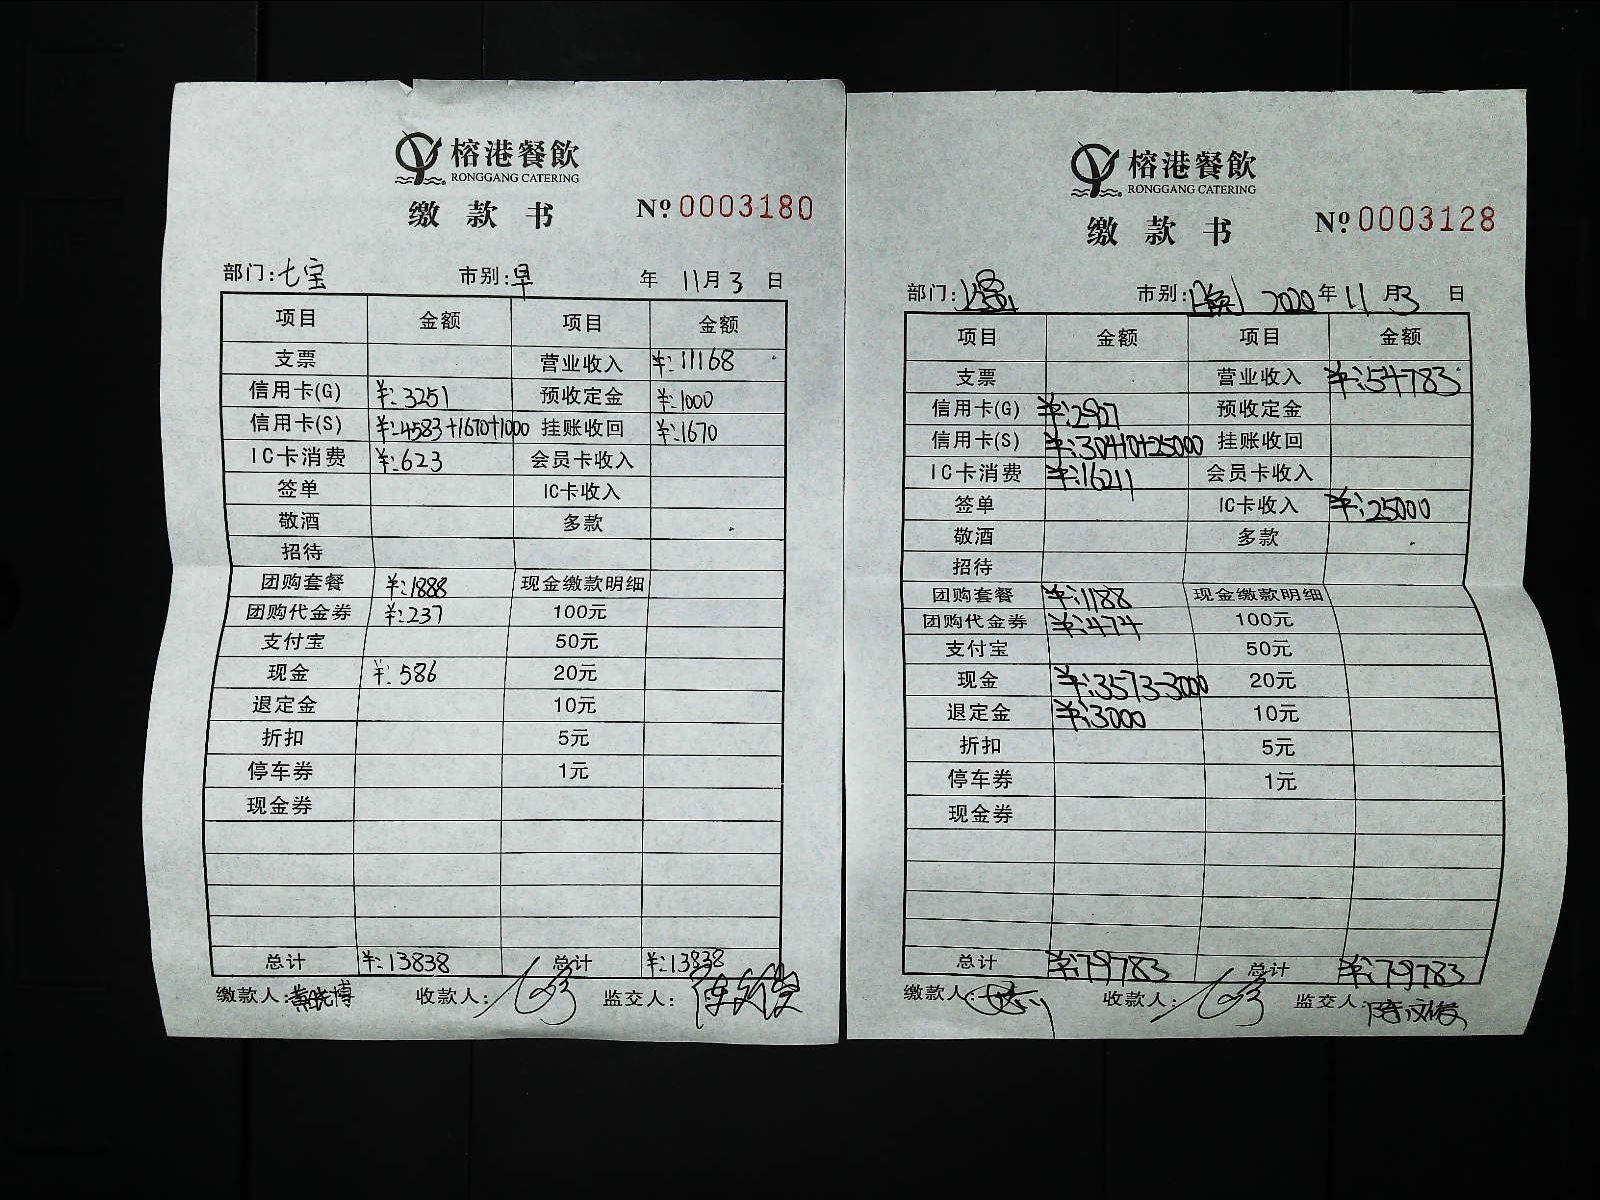 榕港餐飲
RONGGANG CATERING
缴款书 № 0003180
部门:七宝 市别:早 年 11月3日
项目 金额 项目 金额
支票 营业收入 ¥:11168
信用卡(G) ¥:3251 预收定金 ¥:1000
信用卡(S) ¥:4583+1670+1000 挂账收回 ¥:1670
IC卡消费 ¥:623 会员卡收入
签单 IC卡收入
敬酒 多款
招待
团购套餐 ¥:1888 现金缴款明细
团购代金券 ¥:237 100元
支付宝 50元
现金 ¥:586 20元
退定金 10元
折扣 5元
停车券 1元
现金券
总计 ¥:13838 总计 ¥:13838
缴款人: 收款人: 监交人:
榕港餐飲
RONGGANG CATERING
缴款书 № 0003128
部门: 市别: 2020年11月3日
项目 金额 项目 金额
支票 营业收入 ¥:54783
信用卡(G) ¥:2907 预收定金
信用卡(S) ¥:30440+25000 挂账收回
IC卡消费 ¥:16211 会员卡收入
签单 IC卡收入 ¥:25000
敬酒 多款
招待
团购套餐 ¥:1188 现金缴款明细
团购代金券 ¥:474 100元
支付宝 50元
现金 ¥:3573-3000 20元
退定金 ¥:3000 10元
折扣 5元
停车券 1元
现金券
总计 ¥:79783 总计 ¥:79783
缴款人: 收款人: 监交人:陈文俊